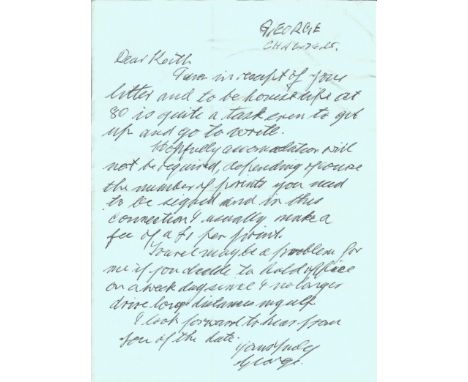 GEORGE
Dear Keith.
I am in receipt of your
letter and to be honest life at
80 is quite a task even to get
up and go to write.
Hopefully accomodation will
not be required, depending of course
the number of prints you need
to be signed and in this
connection I usually make a
fee of a £1 per print.
Travel maybe a problem for
me if you decide to hold office
on a week day since I no longer
drive long distances myself
I look forward to hear from
you of the date.
Yours truly
George.